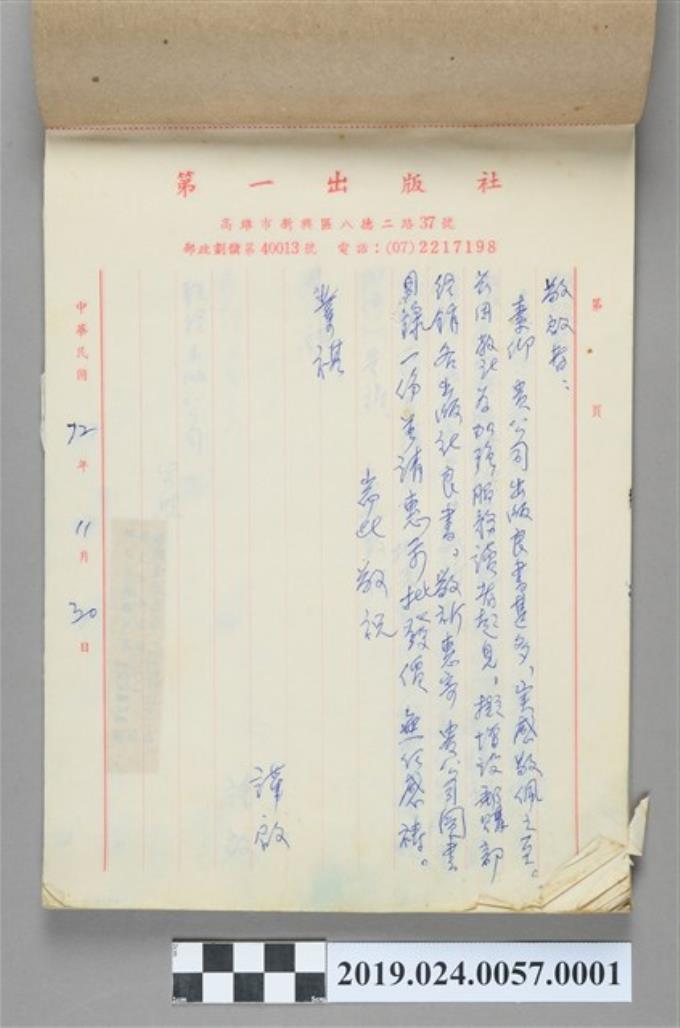 第一出版社
高雄市新興區八德二路37號
郵政劃儲第40013號 電話：(07)2217198
第 頁
敬啟者：
素仰 貴公司出版良書甚多，実感敬佩之至。
茲因敝社為加強服務讀者起見，擬增設郵購部
經銷各出版社良書。敬祈惠寄 貴公司圖書
目錄一份並請惠示批發價 無任感禱。
耑此敬祝
業祺
謹啟
中華民國72年11月30日
2019.024.0057.0001